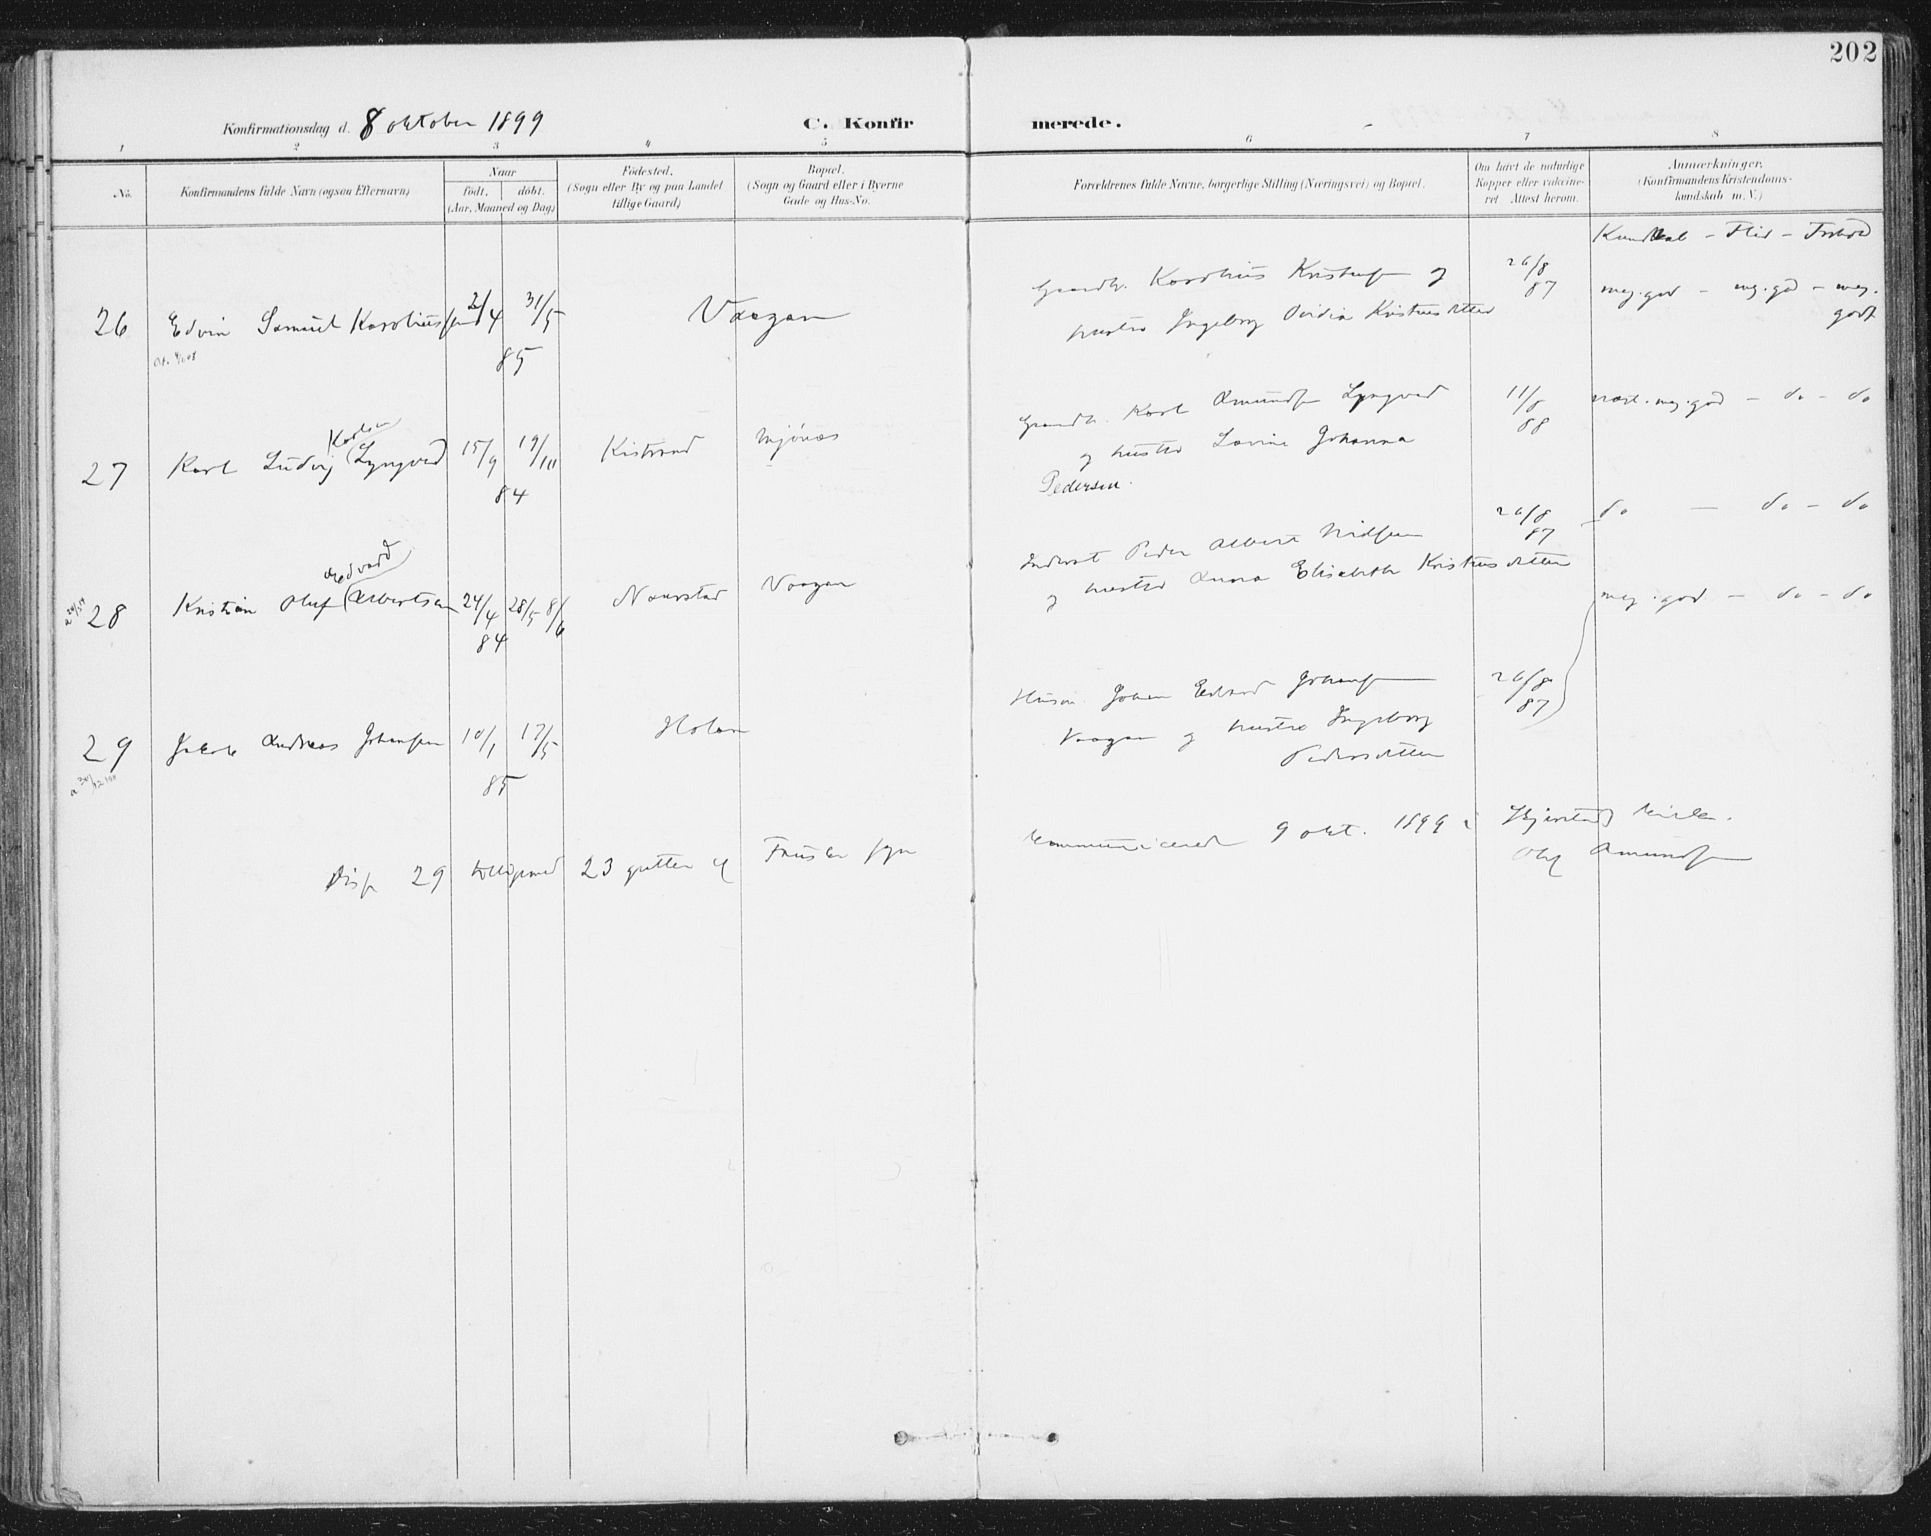 202
Konfirmationsdag d. 8 oktober 1899
C. Konfirmerede.
1 2 3 4 5 6 7 8
No.
Konfirmandens fulde Navn (ogsaa Efternavn)
Naar
født. døbt.
(Aar, Maaned og Dag)
Fødested.
(Sogn eller By og paa Landet
tillige Gaard)
Bopæl.
(Sogn og Gaard eller i Byerne
Gade og Hus-No.
Forældrenes fulde Navne, borgerlige Stilling (Næringsvei) og Bopæl.
Om havt de naturlige
Kopper eller vaccine-
ret. Attest herom.
Anmærkninger.
(Konfirmandens Kristendoms-
kundskab m. V.)
Kundskab - Flid - Forhold
26 Edvin Samuel Karolius 2/4 31/5 85 Vaagan
Gaardbr. Karolius Kristensen og
hustru Ingeborg Ovidia Kristiansdatter
26/8 87
meg. god - meg. god - meg. godt
27 Karl Ludvig (Lyngved Karlsen 15/9 19/10 84 Kistrand Mjønes
Gaardbr. Karl Amundsen Lyngved
og hustru Lovine Johanna
Pedersen.
11/8 88
næst. meg. god - do - do
28 Kristian Oluf (Albertsen Edvard 24/4 28/5 8/6 84 Naurstad Vaagan
Inderst Peder Albert Nilsen
og hustru Anna Elisabeth Kristiansdatter
26/8 87
do - do - do
29 Jakob Andreas Johansen 10/1 17/5 85 Holan
Husm. Johan Edvard Johansen
Vaagan og hustru Ingeborg
Pedersdatter
26/8 87
meg. god - do - do
29 23 gutter og
kommunicerede 9 okt. 1899 i Kjerstad kirke.
Oluf Amundsen